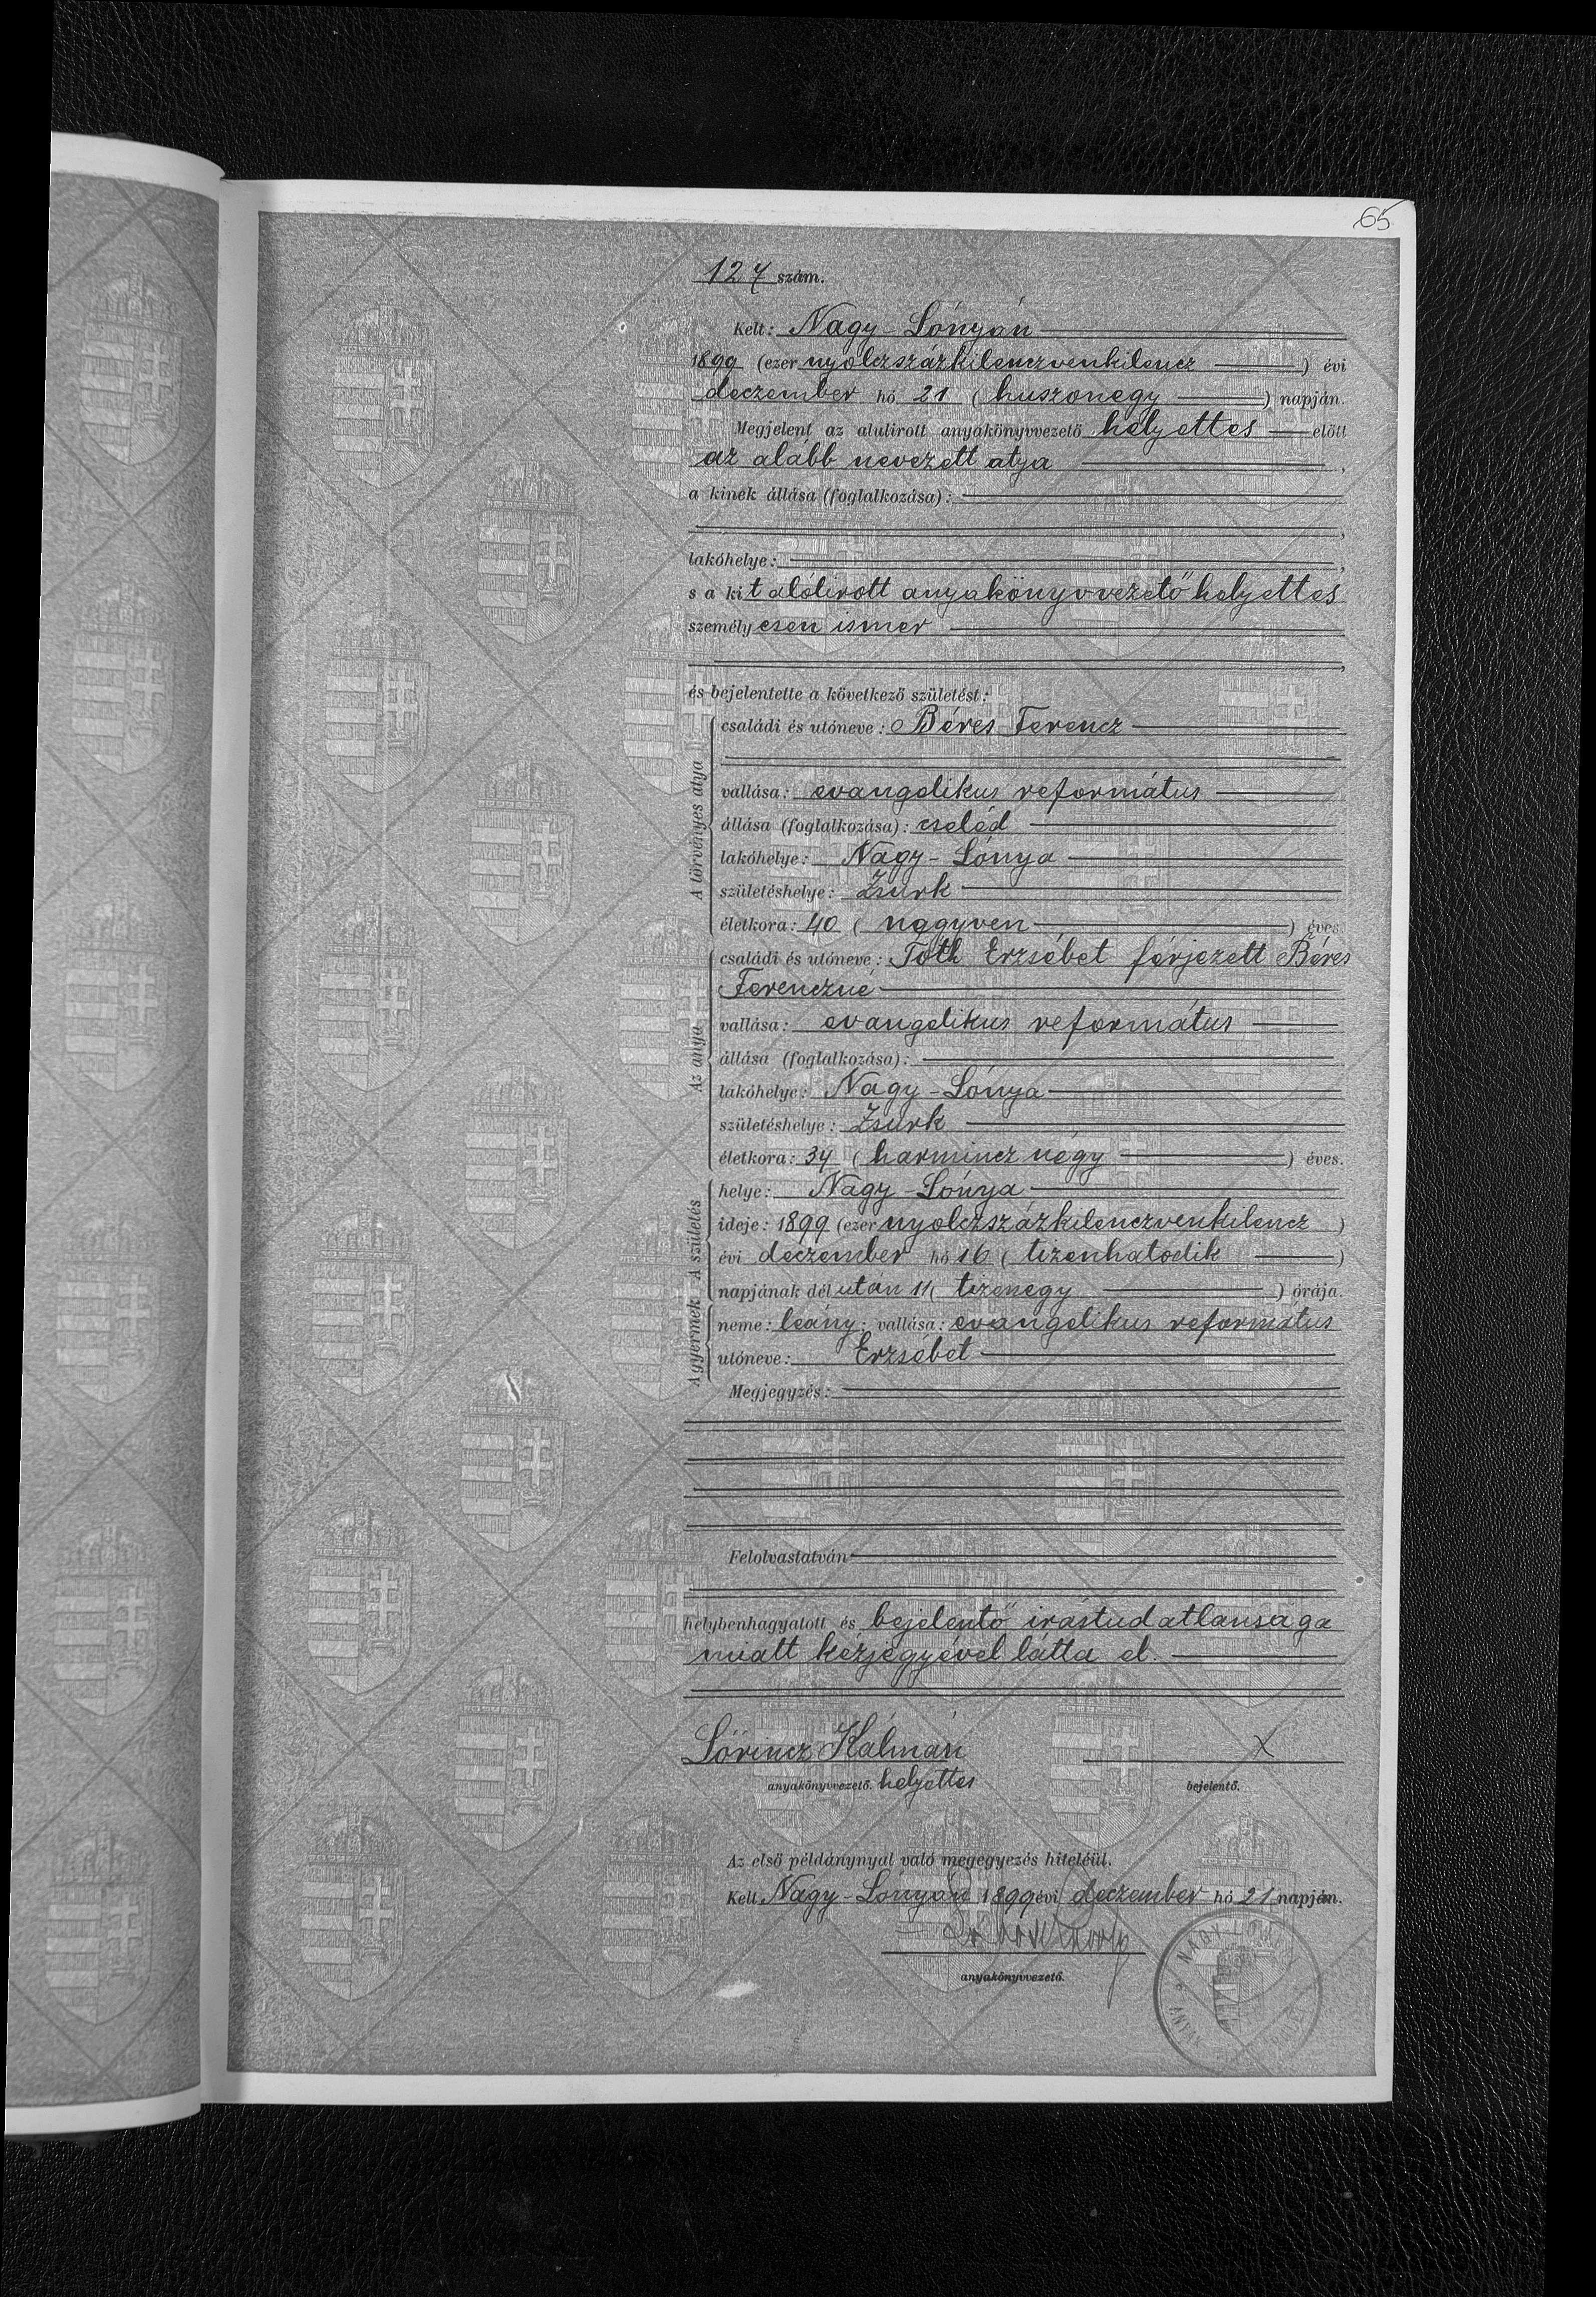 65
127 szám.
Kelt: Nagy-Lónyán
1899 (ezer nyolczszázkilenczvenkilencz) évi
deczember hó 21 (huszonegy) napján.
Megjelent az alulirott anyakönyvvezető helyettes előtt
az alább nevezett atya,
a kinek állása (foglalkozása):
lakóhelye:
s a kit alólirott anyakönyvvezető helyettes
személyesen ismer
és bejelentette a következő születést:
A törvényes atya
családi és utóneve: Béres Ferencz
vallása: evangelikus református
állása (foglalkozása): cseléd
lakóhelye: Nagy-Lónya
születéshelye: Zsurk
életkora: 40 (negyven) éves.
Az anya
családi és utóneve: Tóth Erzsébet férjezett Béres
Ferenczné
vallása: evangelikus református
állása (foglalkozása):
lakóhelye: Nagy-Lónya
születéshelye: Zsurk
életkora: 34 (harmincz négy) éves.
A születés
helye: Nagy-Lónya
ideje: 1899 (ezer nyolczszázkilenczvenkilencz)
évi deczember hó 16 (tizenhatodik)
napjának délután 11 (tizenegy) órája.
A gyermek
neme: leány; vallása: evangelikus református
utóneve: Erzsébet
Megjegyzés:
Felolvastatván
helybenhagyatott és bejelentő irástudatlansága
miatt kézjegyével látta el.
Lőrincz Kálmán X
anyakönyvvezető. helyettes bejelentő.
Az első példánynyal való megegyezés hiteléül.
Kelt Nagy-Lónyán 1899 évi deczember hó 21 napján.
anyakönyvvezető.
NAGY LÓNYAI